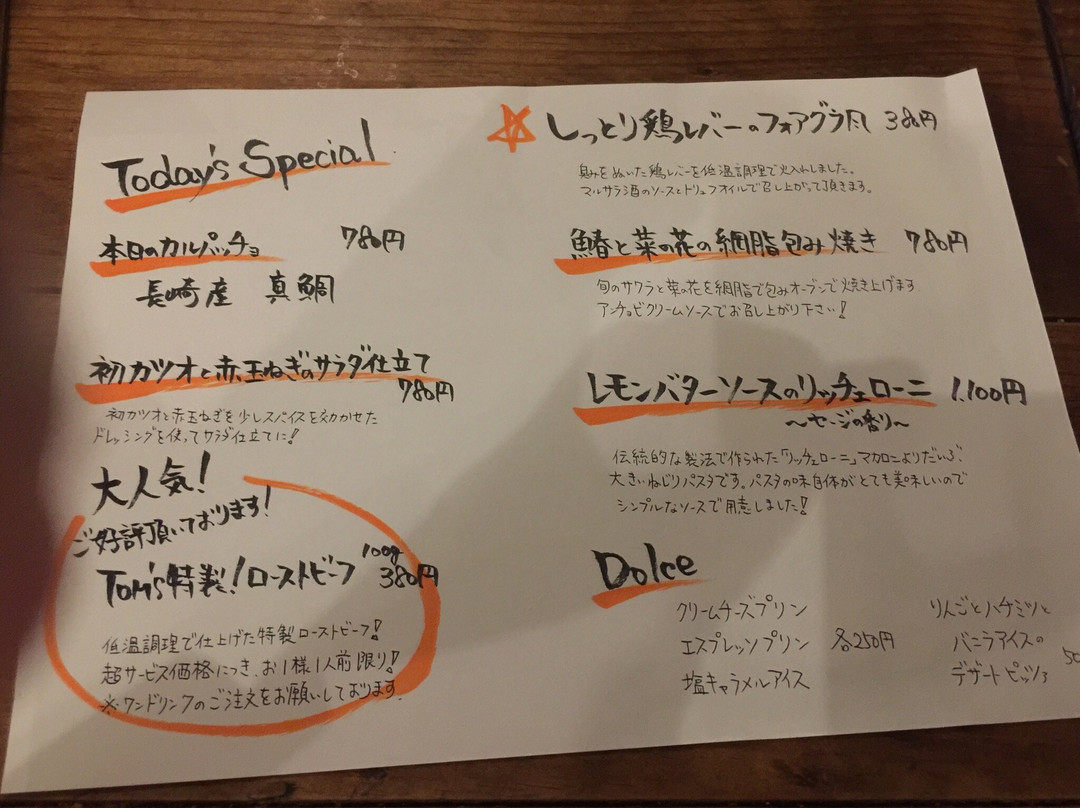 Today's Special
本日のカルパッチョ 780円
長崎産 真鯛
初カツオと赤玉ねぎのサラダ仕立て
780円
初カツオと赤玉ねぎを少しスパイスを効かせた
ドレッシングを使ってサラダ仕立てに!
大人気!
ご好評頂いております!
Tom's特製!ローストビーフ 100g
380円
低温調理で仕上げた特製ローストビーフ!
超サービス価格につき、お1様1人前限り!
※ワンドリンクのご注文をお願いしております。
しっとり鶏レバーのフォアグラ風 380円
臭みをぬいた鶏レバーを低温調理で火入れしました。
マルサラ酒のソースとトリュフオイルで召し上がって頂きます。
鰆と菜の花の網脂包み焼き 780円
旬のサワラと菜の花を網脂で包みオーブンで焼き上げます
アンチョビクリームソースでお召し上がり下さい!
レモンバターソースのリッチェローニ 1,100円
〜セージの香り〜
伝統的な製法で作られた「リッチェローニ」マカロニよりだいぶ
大きいねじりパスタです。パスタの味自体がとても美味しいので
シンプルなソースで用意しました!
Dolce
クリームチーズプリン
エスプレッソプリン 各250円
塩キャラメルアイス
りんごとハチミツと
バニラアイスの
デザートピッツァ